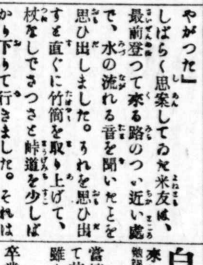 やがつた』
しばらく思案してゐた米友は、
最前登つて来る路のつい近い處
で、水の流れる音を聞いたことを
思ひ出しました。それを思ひ出
すと直ぐに竹筒を取り上げて、
杖なしでさつさと峠道を少しば
かり下りて行きました。それは
白
来